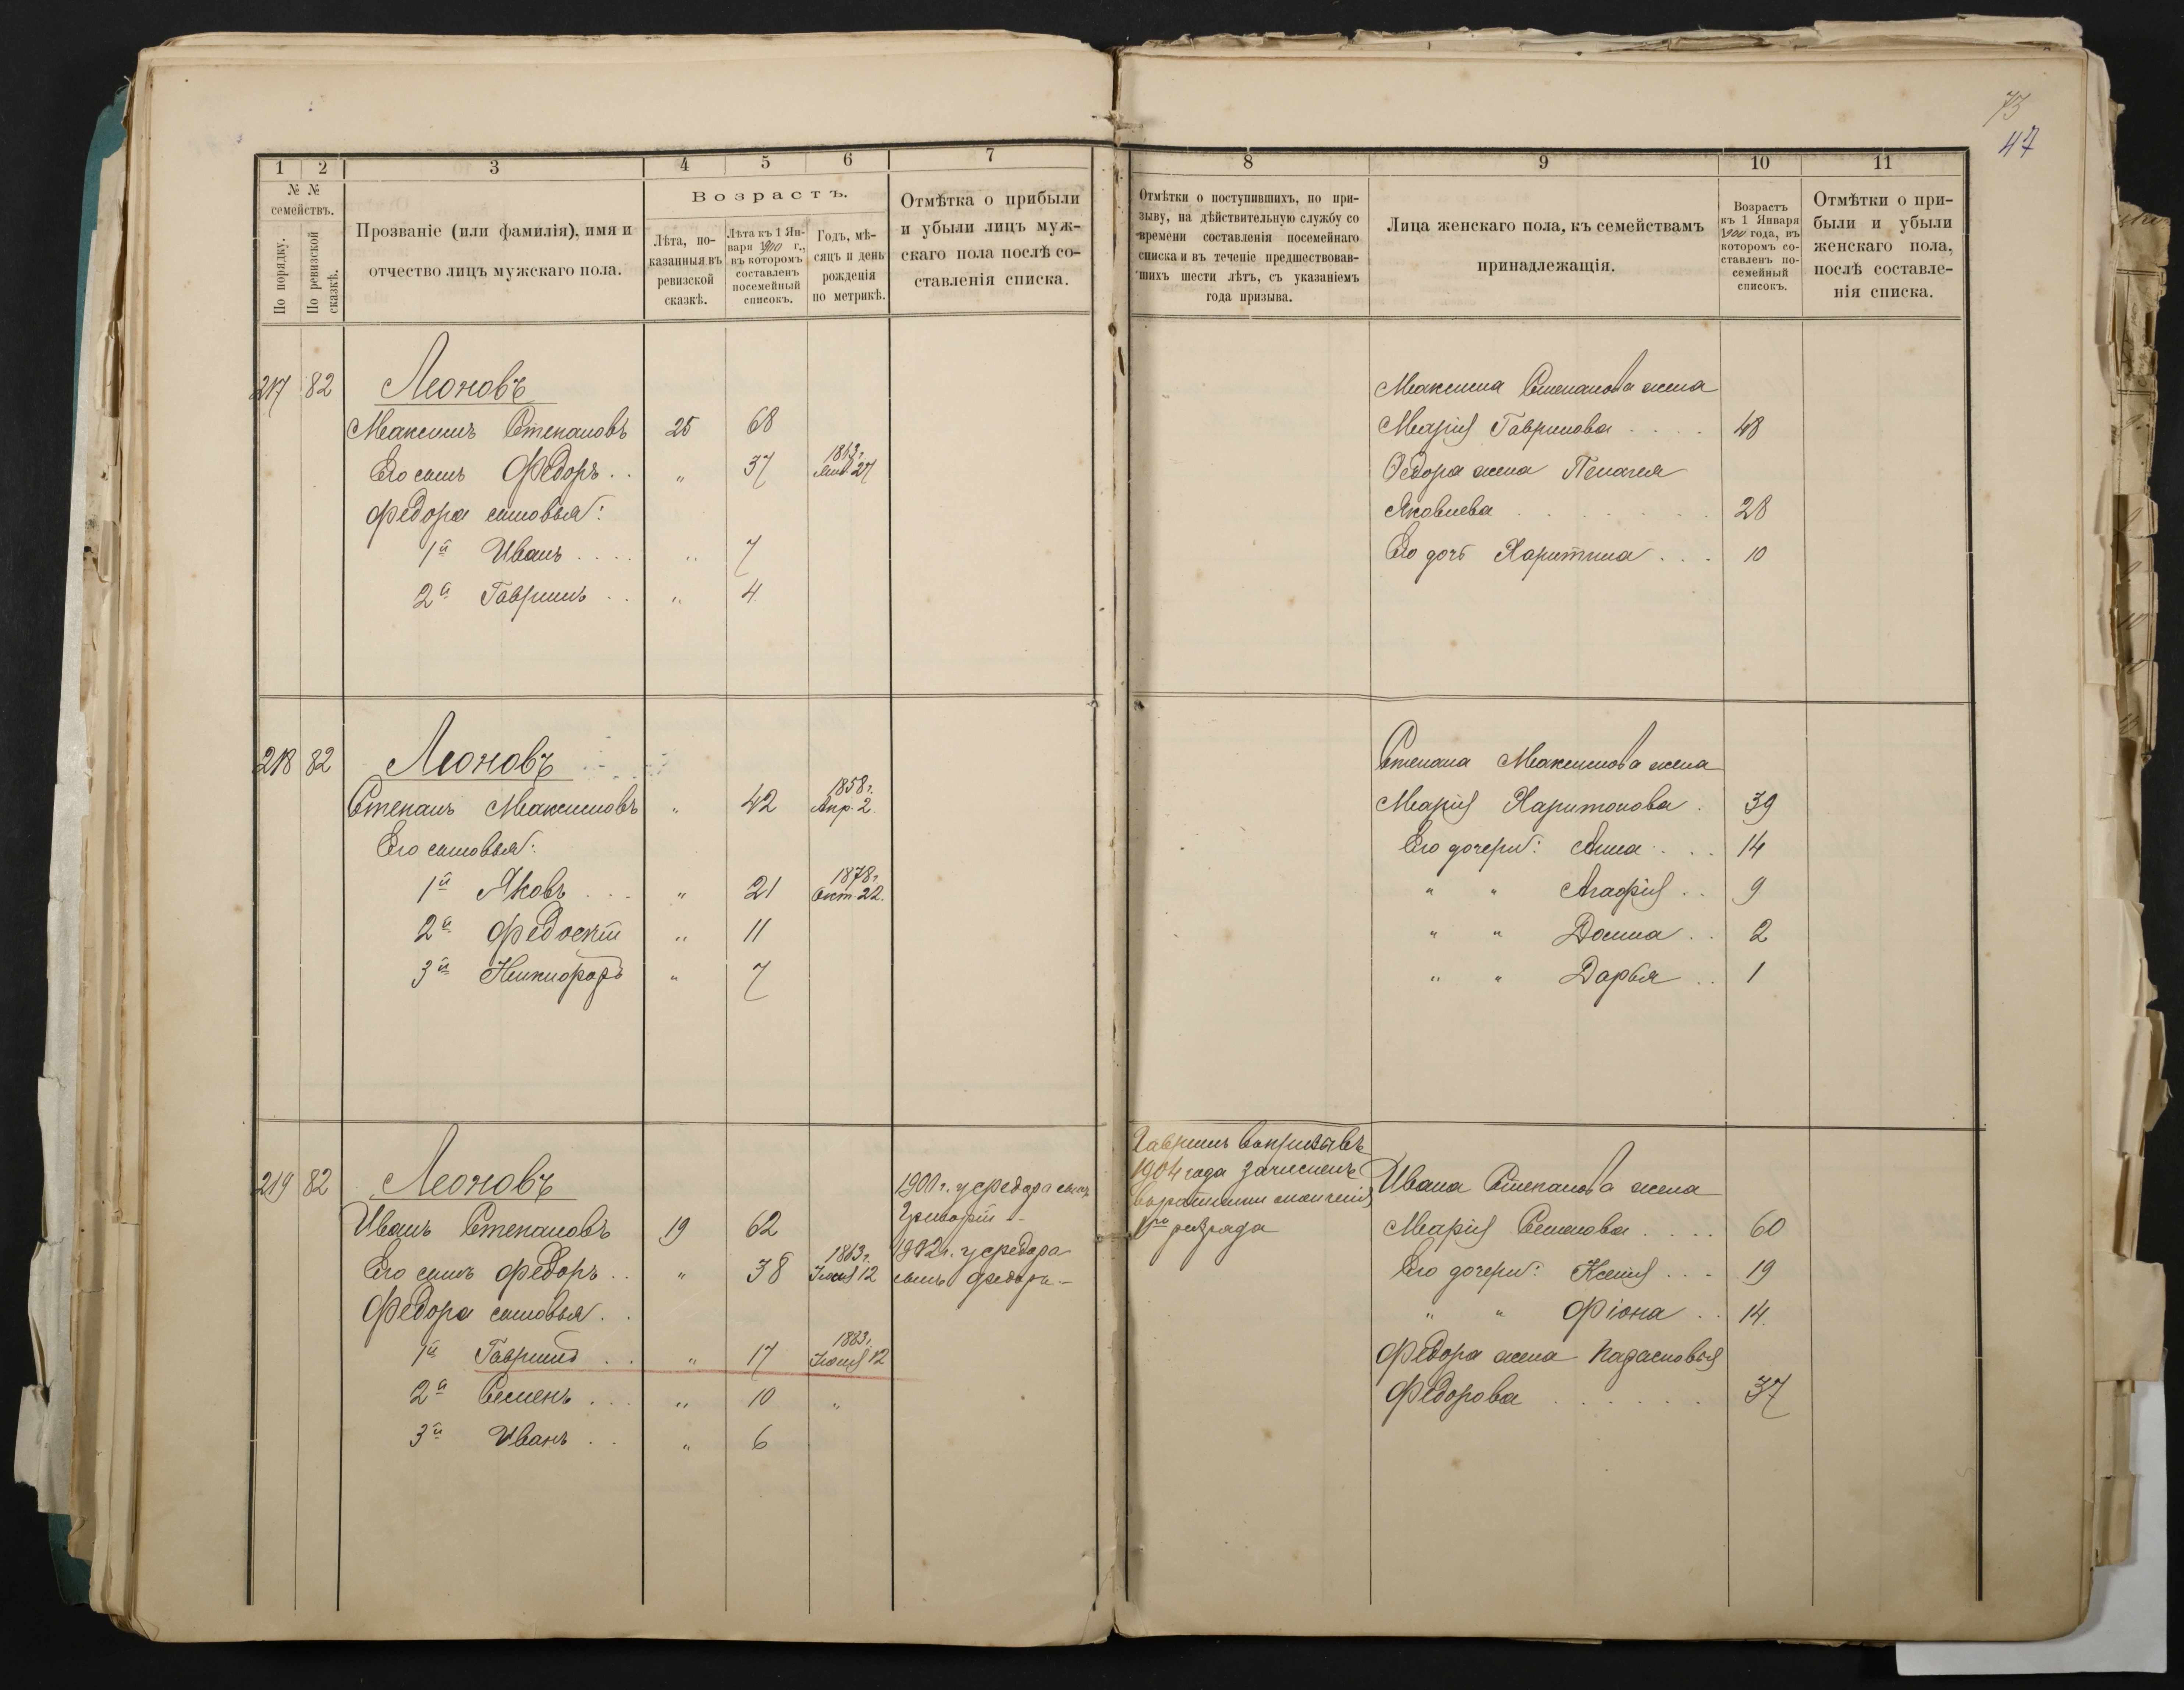 73
47
1 2 3 4 5 6 7
№ №
семействъ.
По порядку.
По ревизской сказкѣ.
Прозваніе (или фамилія), имя и
отчество лицъ мужскаго пола.
Возрастъ.
Лѣта, по-
казанныя въ
ревизской
сказкѣ.
Лѣта къ 1 Ян-
варя 1900 г.,
въ которомъ
составленъ
посемейный
списокъ.
Годъ, мѣ-
сяцъ и день
рожденія
по метрикѣ.
Отмѣтка о прибыли
и убыли лицъ муж-
скаго пола послѣ со-
ставленія списка.
217 82 Леоновъ
Максимъ Степановъ 25 68
Его сынъ Федоръ . . „ 37 27
Федора сыновья:
1й Иванъ . . . . „ 7
2й Гаврилъ . . „ 4
218 82 Леоновъ
Степанъ Максимовъ „ 42 1858 г. Апр. 2
Его сыновья:
1й Яковъ . . . „ 21 1878 г. Окт. 22.
2й Федосѣй „ 11
3й Никифоръ „ 7
219 82 Леоновъ
Иванъ Степановъ 19 62
Его сынъ Федоръ . . „ 38 1863 г. 12
Федора сыновья . .
1й Гаврилъ . . „ 17 1883 г. 12
2й Семенъ . . . „ 10 „
3й Иванъ . . „ 6
1900 г. у Федора сынъ
Григорій -
у Федора
сынъ Федоръ -
8 9 10 11
Отмѣтки о поступившихъ, по при-
зыву, на дѣйствительную службу со
времени составленія посемейнаго
списка и въ теченіе предшествовав-
шихъ шести лѣтъ, съ указаніемъ
года призыва.
Лица женскаго пола, къ семействамъ
принадлежащія.
Возрастъ
къ 1 Января
1900 года, въ
которомъ со-
ставленъ по-
семейный
списокъ.
Отмѣтки о при-
были и убыли
женскаго пола,
послѣ составле-
нія списка.
Максима Степанова жена
Марія Гаврилова . . . . 48
Федора жена Пелагея
Яковлева . . . . . . . 28
Его дочь Харитина . . . 10
Степана Максимова жена
Марія Харитонова . 39
Его дочери: Анна . . . 14
„ „ Агафія . . 9
„ „ Домна . . 2
„ „ Дарья . . 1
Гаврилъ въ призывъ
1904 года зачисленъ
въ ратники ополченія
1го разряда
Ивана Степанова жена
Марія Семенова . . . . 60
Его дочери: Ксенія . . . 19
„ „ Фіона . . 14.
Федора жена
Федорова . . . . . . 37